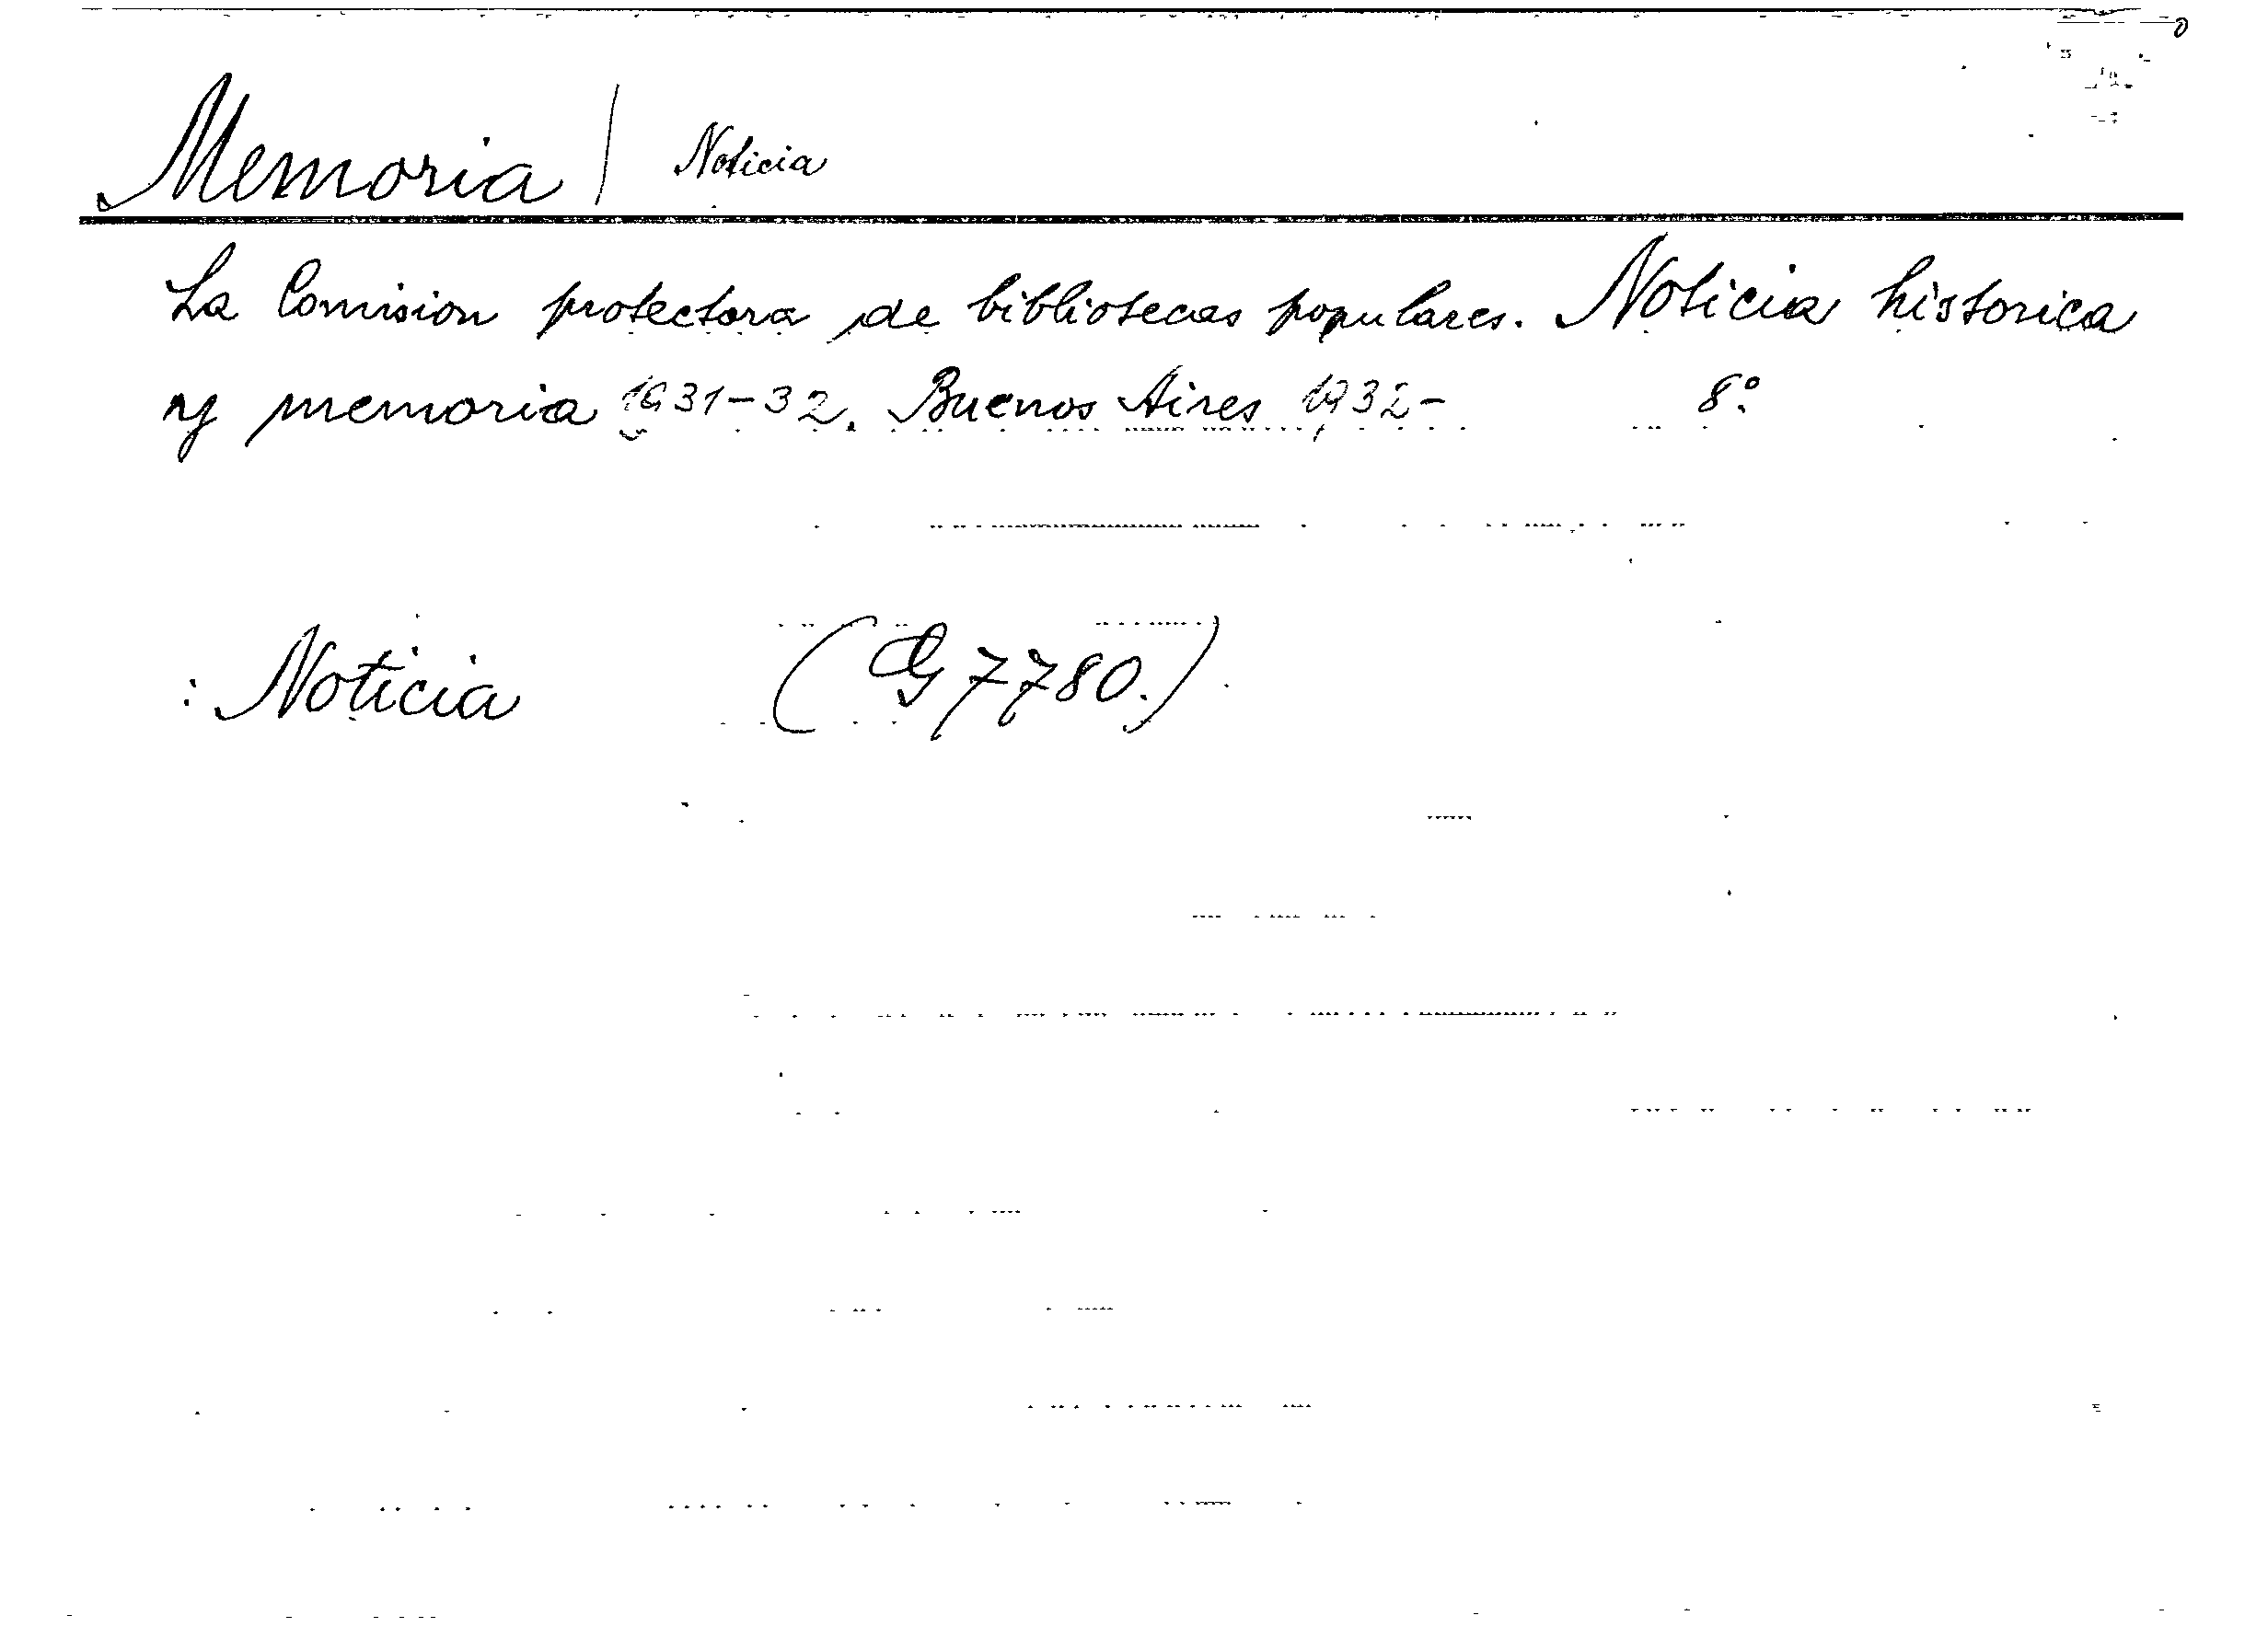 Memoria / Noticia
La Comision protectora de bibliotecas populares. Noticia historica
y memoria 1931-32. Buenos Aires 1932- 8º.
: Noticia (G 7780.)